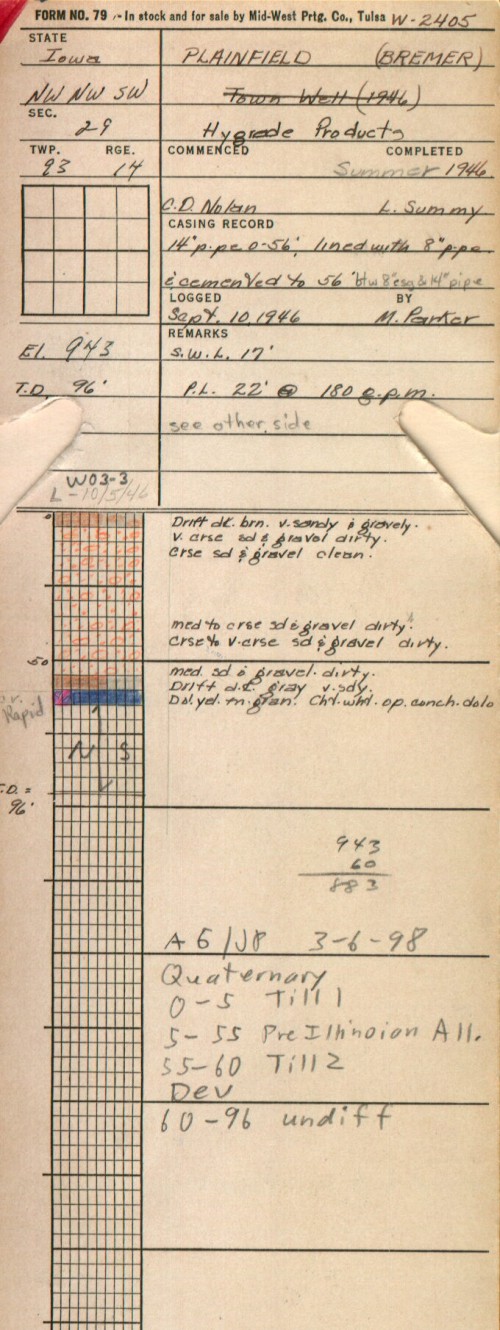 FORM NO. 79 - In stock and for sale by Mid-West Prtg. Co., Tulsa W-2405
STATE
Iowa PLAINFIELD (BREMER)
NW NW SW Town Well (1946)
SEC.
29 Hygrade Products
TWP. RGE. COMMENCED COMPLETED
93 14 Summer 1946
C.D. Nolan L. Summy
CASING RECORD
14" pipe 0-56', lined with 8" pipe
& cemented to 56' btw 8" csg & 14" pipe
LOGGED BY
Sept. 10, 1946 M. Parker
REMARKS
El. 943 S.W.L. 17'
T.D. 96' P.L. 22' @ 180 g.p.m.
see other side
W03-3
L-10/5/46
0 Drift dk. brn. v. sandy & gravely.
V. crse sd & gravel dirty.
Crse sd & gravel clean.
med to crse sd & gravel dirty.
Crse to v. crse sd & gravel dirty.
50
med. sd & gravel. dirty.
Drift dk. gray v. sdy.
Dol. yel. fn. gran. Cht. wht. op. conch. dolo
Rapid
N S
T.D. =
96'
943
60
883
A6/JP 3-6-98
Quaternary
0-5 Till 1
5-55 Pre Illinoian All.
55-60 Till 2
Dev
60-96 undiff